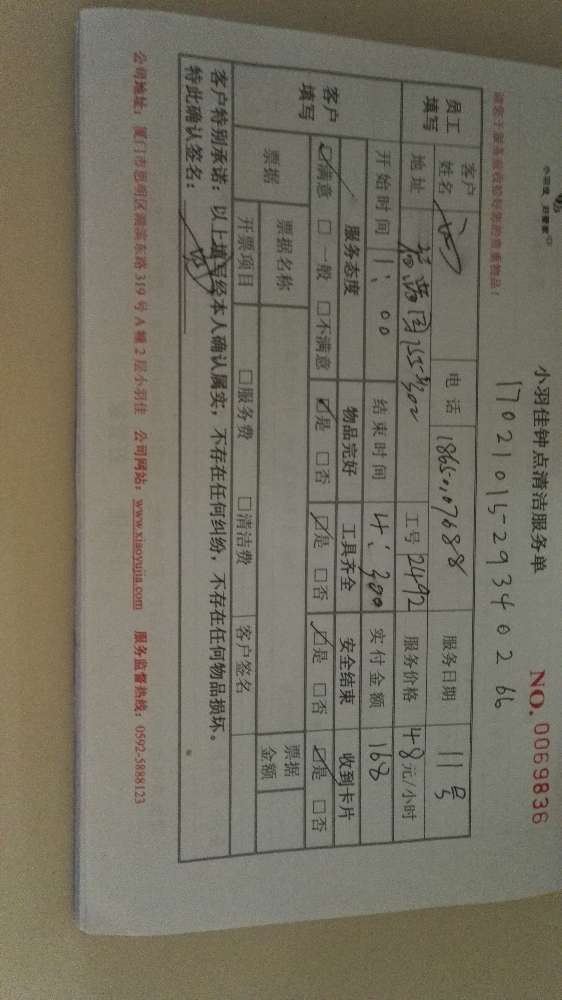 小羽佳 好管家
小羽佳钟点清洁服务单
NO. 0069836
17021015-29340266
员工填写
客户姓名
电话
服务日期 11号
地址
工号 2492
服务价格 48元/小时
开始时间 1:00
结束时间
实付金额 168
客户填写
服务态度 物品完好 工具齐全 安全结束 收到卡片
☑满意 □一般 □不满意 ☑是 □否 ☑是 □否 ☑是 □否 ☑是 □否
票据 票据名称 票据金额
开票项目 □服务费 □清洁费 客户签名
客户特别承诺:以上填写经本人确认属实,不存在任何纠纷,不存在任何物品损坏。
特此确认签名:
公司地址:厦门市思明区湖滨东路319号A幢2层小羽佳 公司网站:www.xiaoyujia.com 服务监督热线:0592-5888123